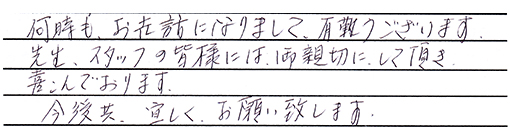 何時も、お世話になりまして、有難うございます。
先生、スタッフの皆様には、御親切にして頂き
喜こんでおります。
今後共、宜しく、お願い致します。